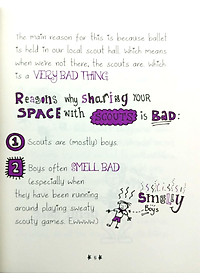 The main reason for this is because ballet
is held in our local scout hall, which means
when we're not there, the scouts are. Which
is a VERY BAD THING.
Reasons why sharing YOUR
SPACE with SCOUTS is BAD:
1 Scouts are (mostly) boys.
2 Boys often SMELL BAD
(especially when
they have been running
around playing sweaty
scouty games. Ewwww.)
smelly
Boys